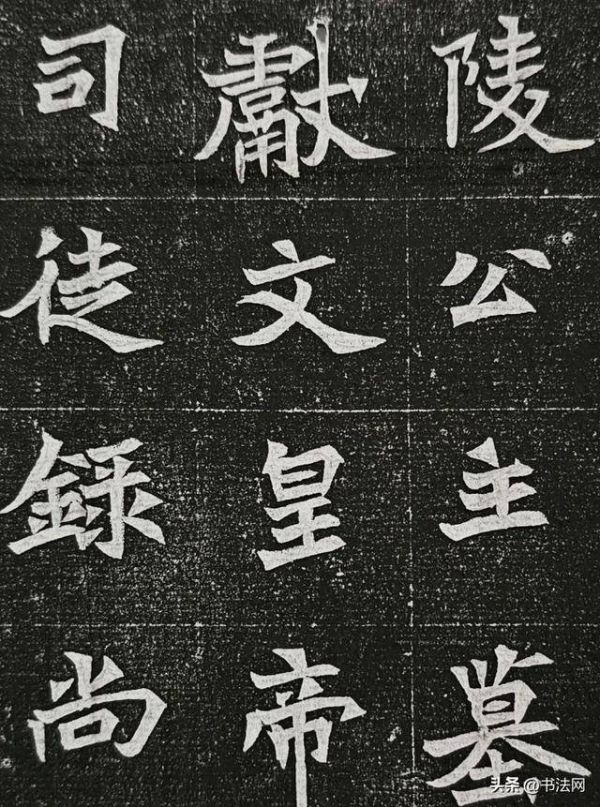 陵公主墓
獻文皇帝
司徒録尚
头条@书法网